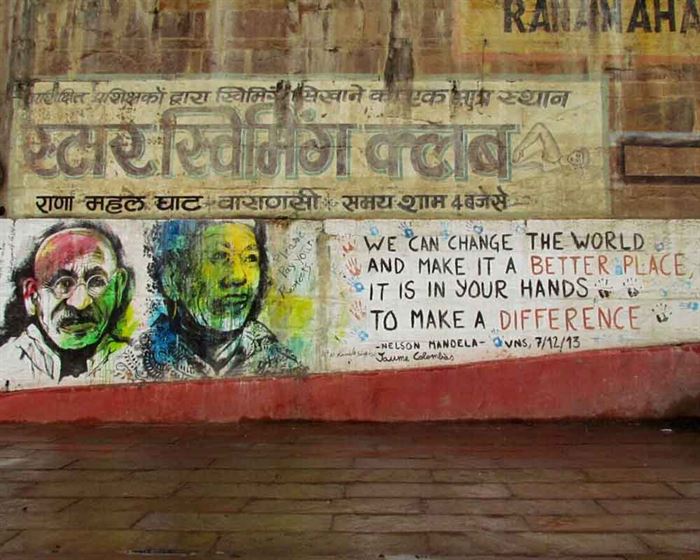 RANAMAHA
प्रशिक्षकों द्वारा स्विमिंग सिखाने का एक मात्र स्थान
स्टार स्विमिंग क्लब
राणा महल घाट - वाराणसी - समय शाम 4 बजे से
WE CAN CHANGE THE WORLD
AND MAKE IT A BETTER PLACE
IT IS IN YOUR HANDS
TO MAKE A DIFFERENCE
-NELSON MANDELA- VNS, 7/12/13
Jaume Colombàs